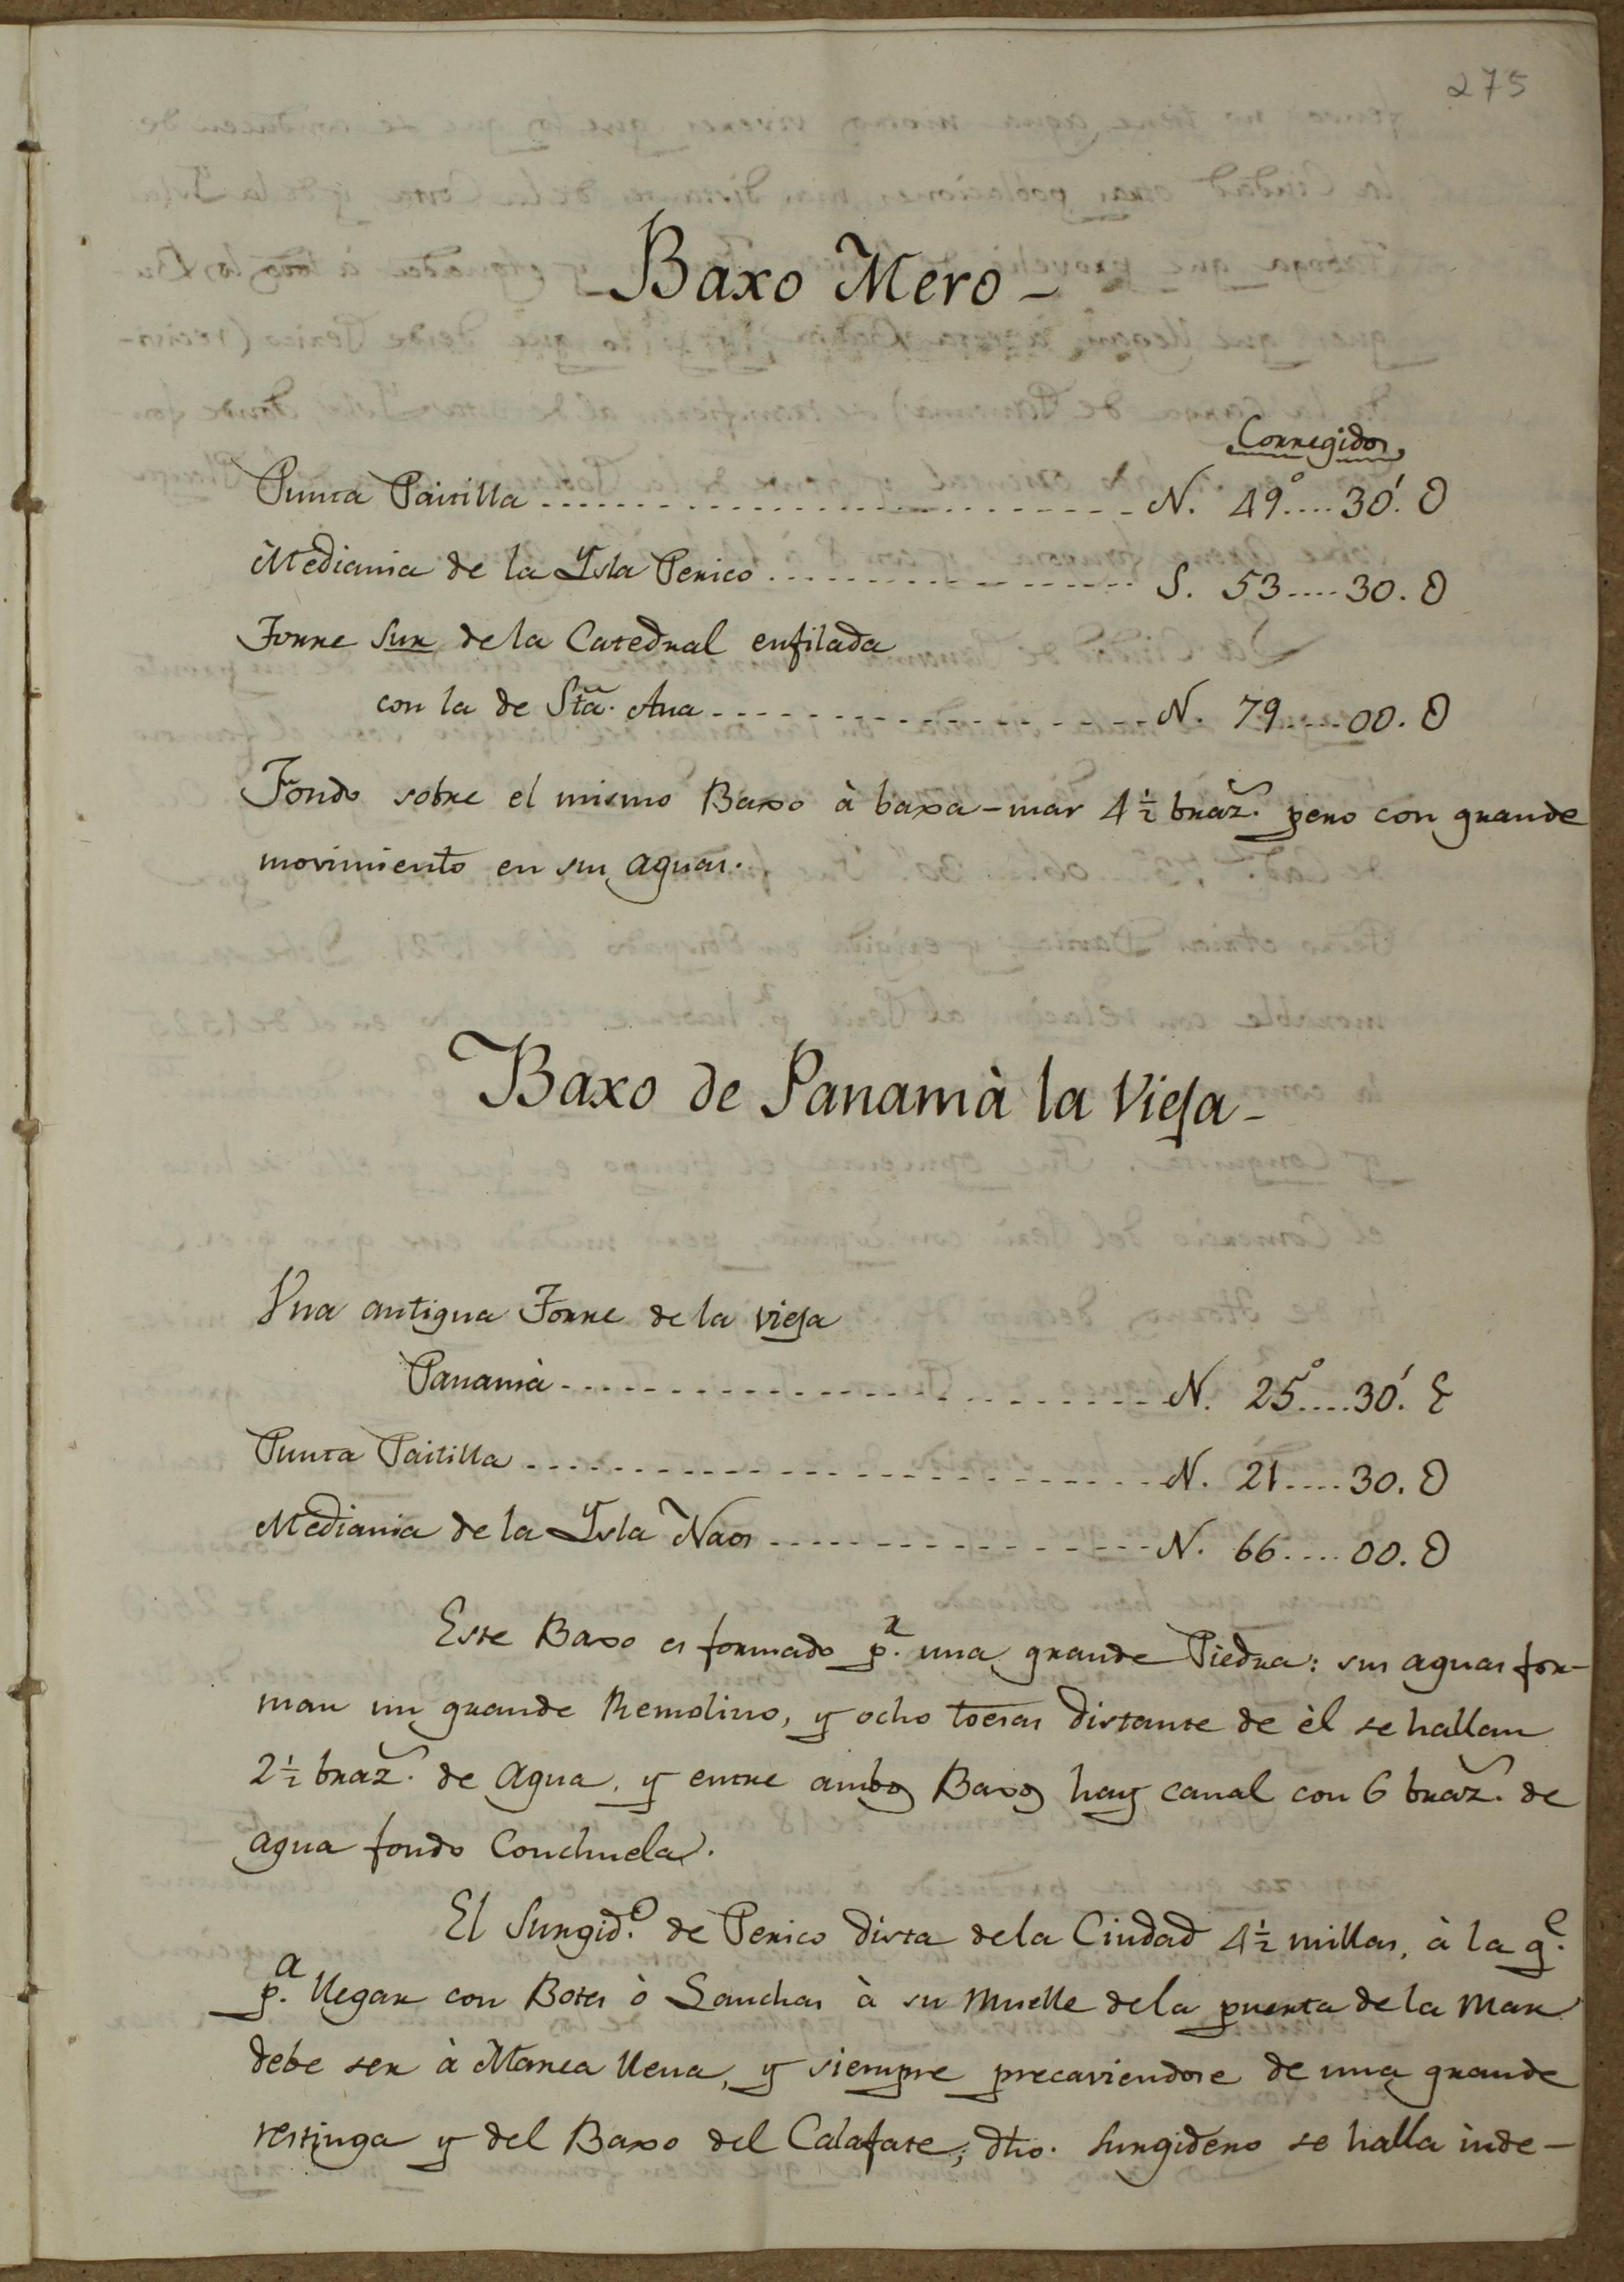 275
Baxo Mero-
Corregidos
Punta Paitilla ........ N. 49°....30'. O
Mediania de la Ysla Perico ........ S. 53....30. O
Torre Sur de la Catedral enfilada
con la de Sta. Ana ........ N. 79....00. O
Fondo sobre el mismo Baxo à baxa-mar 4½ braz.s pero con grande
movimiento en sus aguas.
Baxo de Panamà la Vieja-
Una antigua Torre de la vieja
Panamà ........ N. 25°....30'. E
Punta Paitilla ........ N. 21....30. O
Mediania de la Ysla Naos ........ N. 66....00. O
Este Baxo es formado p.r una grande Piedra: sus aguas for-
man un grande Remolino, y ocho toesas distante de èl se hallan
2½ braz.s de agua, y entre ambos Baxos hay canal con 6 braz.s de
agua fondo Conchuela.
El Surgid.o de Perico dista de la Ciudad 4½ millas, à la q.e
p.a llegar con Botes ò Lanchas à su muelle de la puerta de la Mar
debe ser à Marea llena, y siempre precaviendose de una grande
restinga y del Baxo del Calafate; dho. surgidero se halla inde-